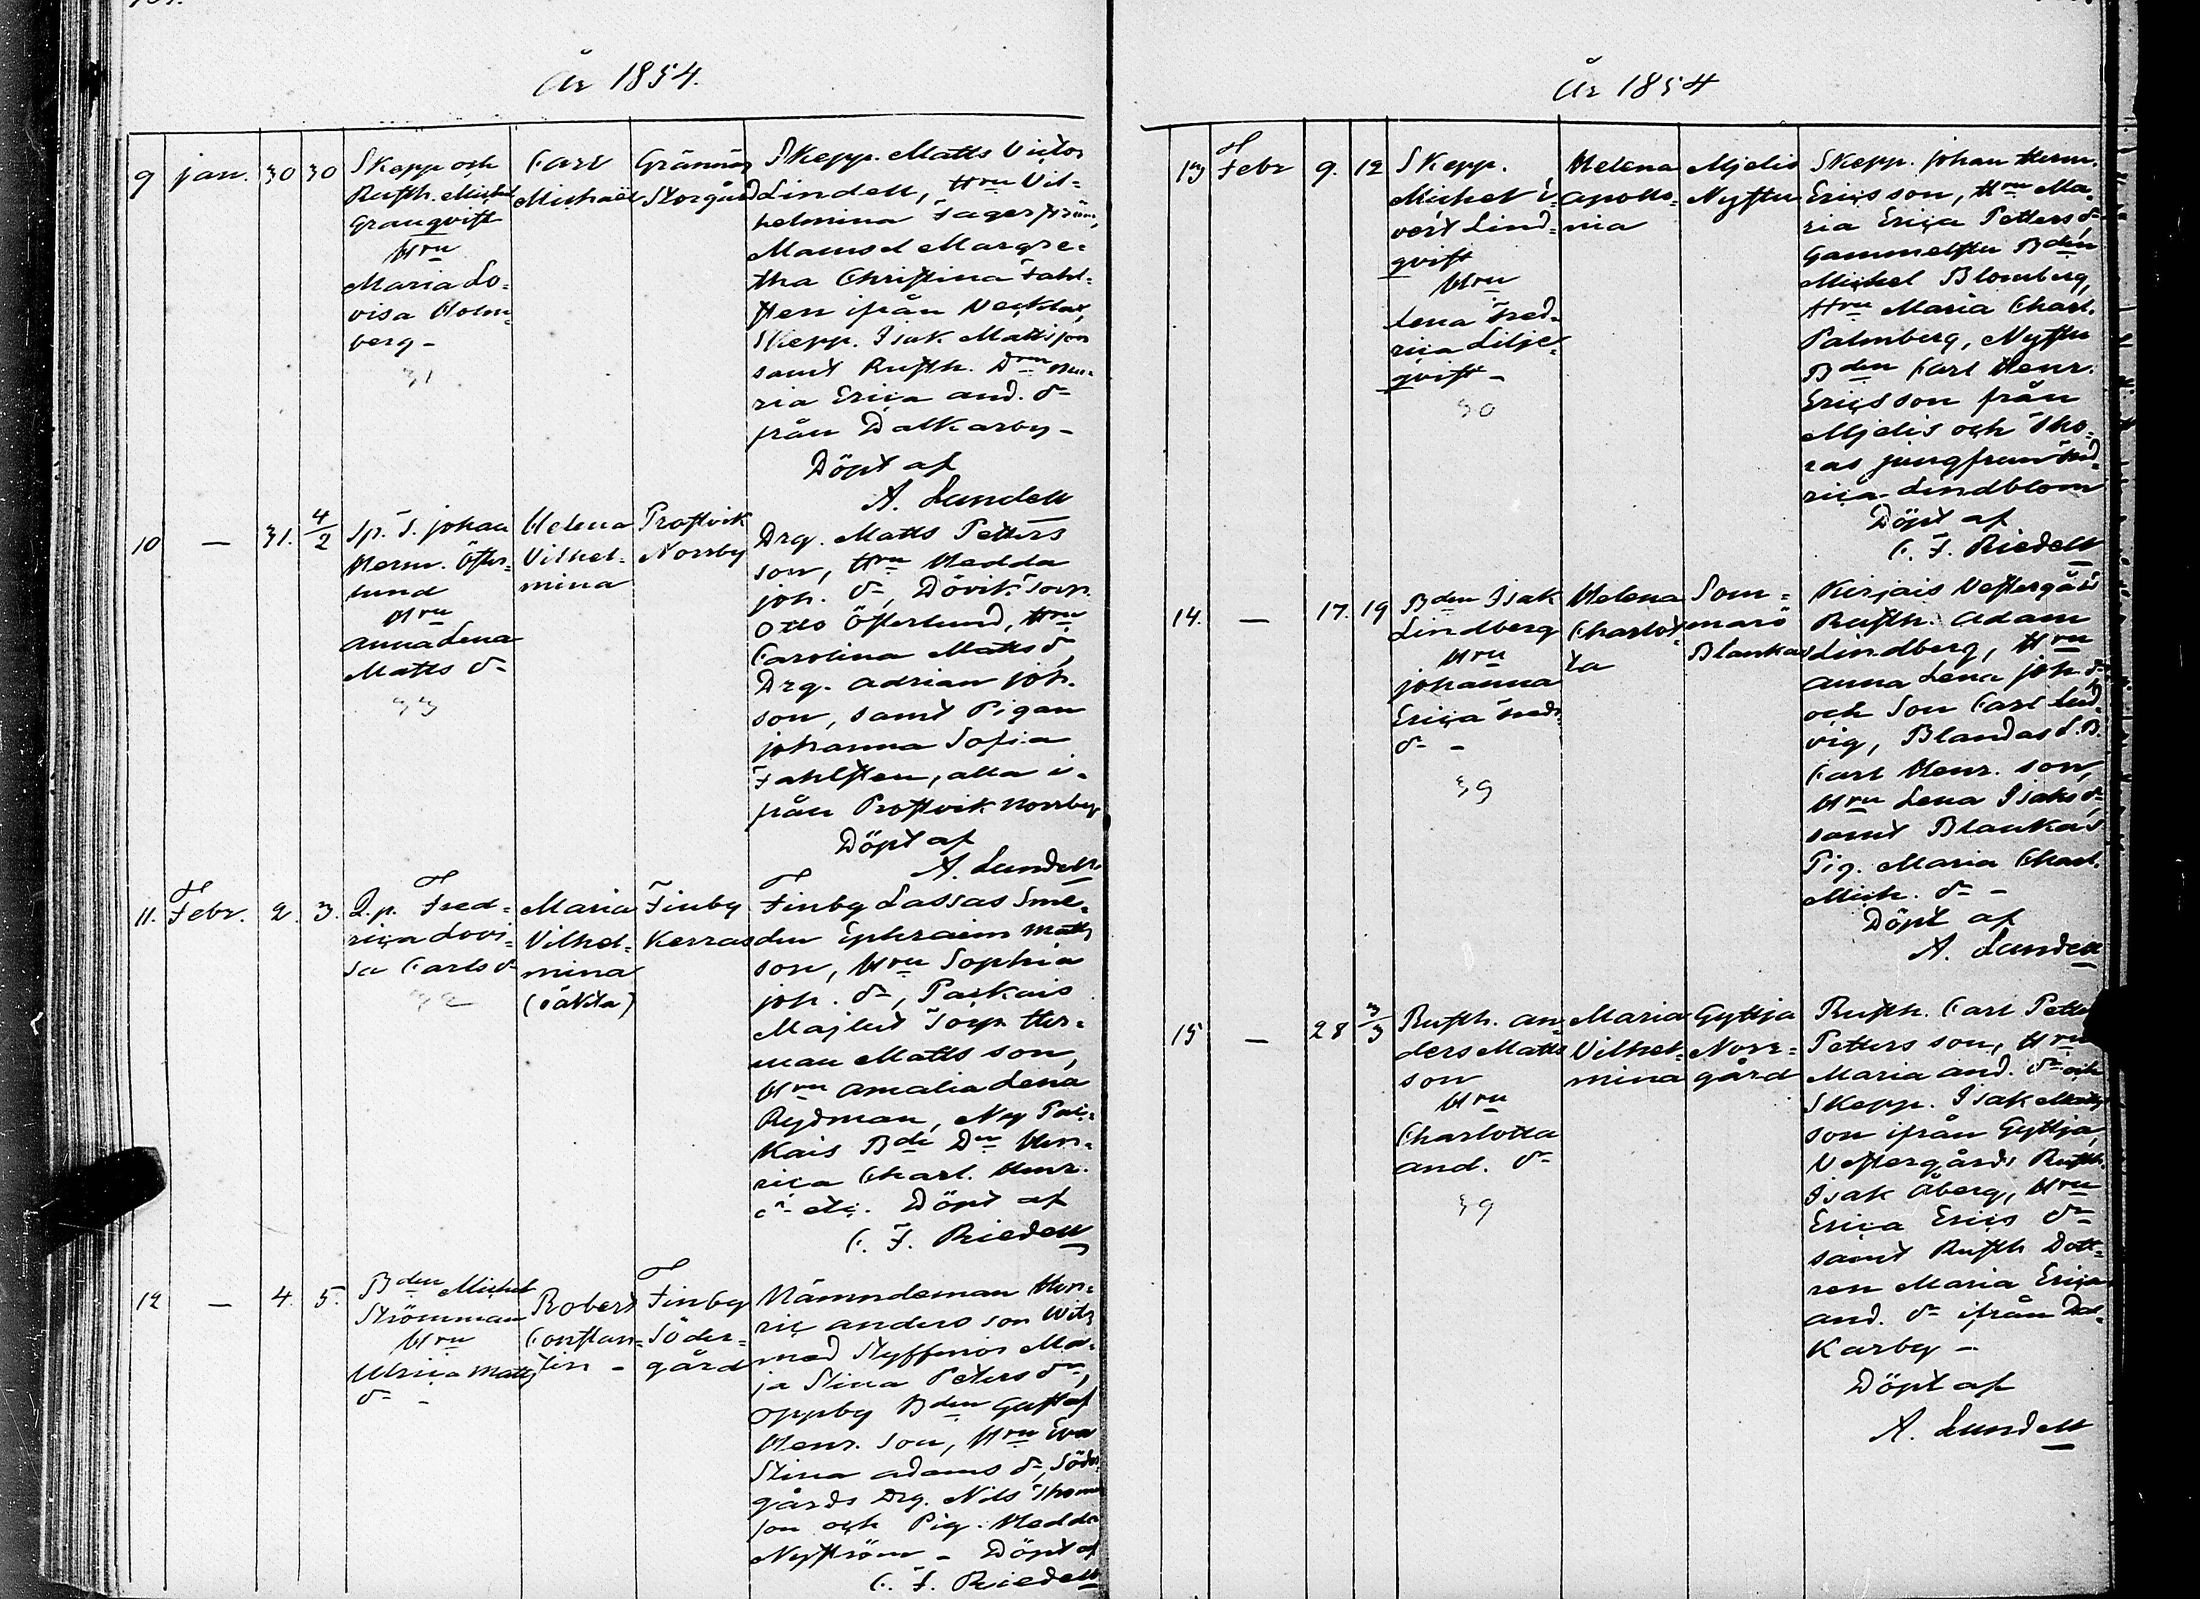 År 1854.
9 jan. 30 30
Skepp. och
Rusth. Michel
Granqvist
Hru
Maria Lo-
visa Holm-
berg -
31
Carl
Michael
Grännäs
Storgård
Skepp. Matts Victor
Lindell, Hru Vil-
helmina Fagerström,
Mamsel Margre-
tha Christina Fahl-
sten ifrån Vecklax,
Skepp. Isak Mattsson
samt Rusth. Drn Ma-
ria Erica And. dr
från Dalkarby -
Döpt af
A. Lundell
10 — 31. 4/2
Sp. T. Johan
Herm. Öster-
lund
Hru
Anna Lena
Matts dr
33
Helena
Vilhel-
mina
Prostvik
Norrby
Drg. Matts Petters
son, Hru Hedda
Joh. dr, Dövik Torp.
Otto Österlund, Hru
Carolina Matts dr,
Drg. Adrian Joh.
son, samt Pigan
Johanna Sofia
Fahlsten, alla i-
från Prostvik Norrby
Döpt af
A. Lundell
11. Febr. 2. 3.
Q.p. Fred-
rica Lovi-
sa Carls dr
32
Maria
Vilhel-
mina
(oäkta)
Finby
Kerras
Finby Lassas Sme-
den Ephraim Matts
son, Hru Sophia
Joh. dr, Parkais
Majlut Torp. Her-
man Matts son,
Hru Amalia Lena
Rydman, Ny Par-
kais Bde Dn Hen-
rica Charl. Henr.
dr etc. Döpt af
C. F. Riedell
12 — 4. 5.
Bden Michel
Strömman
Hru
Ulrica Matts
dr -
Robert
Constan-
tin -
Finby
Söder-
gård
Nämndeman Hen-
ric Anders son Witz
med Styfmor Ma-
ja Stina Peters dr,
Oppby Bden Gustaf
Henr. son, Hru Eva
Stina Adams dr, Söder-
gårds Drg. Nils Thomas
son och Pig. Hedda
Nyström - Döpt af
C. F. Riedell
År 1854
13 Febr 9. 12
Skepp.
Michel I-
vert Lind-
qvist
Hru
Lena Fred-
rica Lilje-
qvist -
30
Helena
Apollo-
nia
Mjelis
Nystu
Skepp. Johan Herm.
Ericsson, Hru Ma-
ria Erica Petters dr
Gammelstu Bden
Michel Blomberg,
Hru Maria Charl.
Palmberg, Nystu
Bden Carl Henr.
Ericsson från
Mjelis och Tho-
ras jungfrun Fred-
rica Lindblom
Döpt af
C. F. Riedell
14. — 17. 19
Bden Isak
Lindberg
Hru
Johanna
Erica Fredr.
dr -
39
Helena
Charlot-
ta
Som-
marö
Blankas
Kirjais Vestergårds
Rusth. Adam
Lindberg, Hru
Anna Lena Joh. dr
och Son Carl Lud-
vig, Blandas L.B.
Carl Henr. son,
Hru Lena Isaks dr,
samt Blankas
Pig. Maria Charl.
Mich. dr -
Döpt af
A. Lundell
15 — 28 3/3
Rusth. An-
ders Matts
son
Hru
Charlotta
And. dr
39
Maria
Vilhel-
mina
Gyttja
Norr-
gård
Rusth. Carl Petter
Petters son, Hru
Maria And. dr och
Skepp. Isak Matts
son ifrån Gyttja,
Vestergårds Rusth.
Isak Åberg, Hru
Erica Erics dr
samt Rusth Dott-
ren Maria Erica
And. dr ifrån Dal-
karby -
Döpt af
A. Lundell